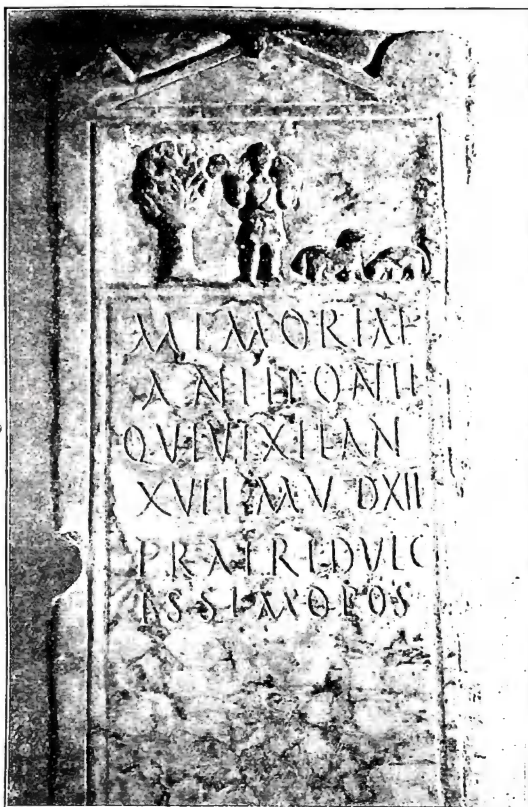 MEMORIAE
QVI VIXIT AN
XVII M V DXII
FRATRI DVLC
ISSIMO POS